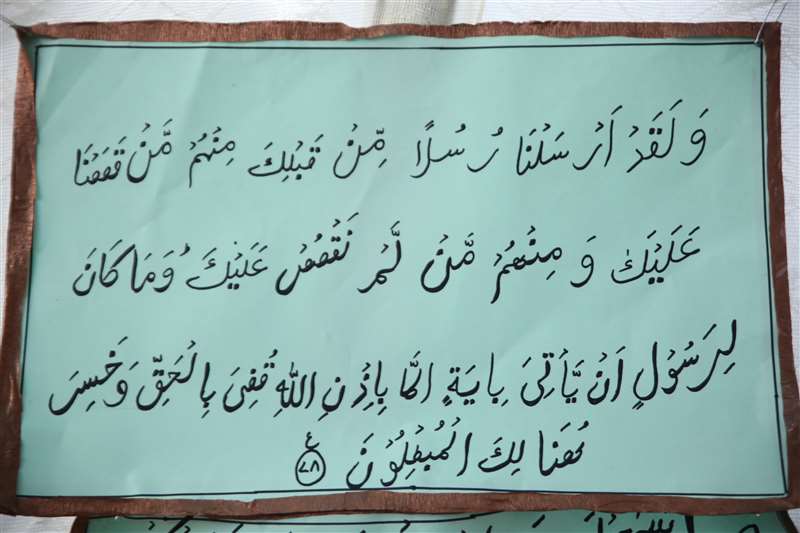 وَلَقَدْ اَرْسَلْنَا رُسُلًا مِّنْ قَبْلِكَ مِنْهُمْ مَّنْ قَصَصْنَا
عَلَيْكَ وَ مِنْهُمْ مَّنْ لَّمْ نَقْصُصْ عَلَيْكَ ؕ وَمَا كَانَ
لِرَسُوْلٍ اَنْ يَّاْتِىَ بِايَةٍ اِلَّا بِاِذْنِ اللّٰهِ قُضِىَ بِالْحَقِّ وَ خَسِرَ
هُنَا لِكَ الْمُبْطِلُوْنَ ع ٧٨